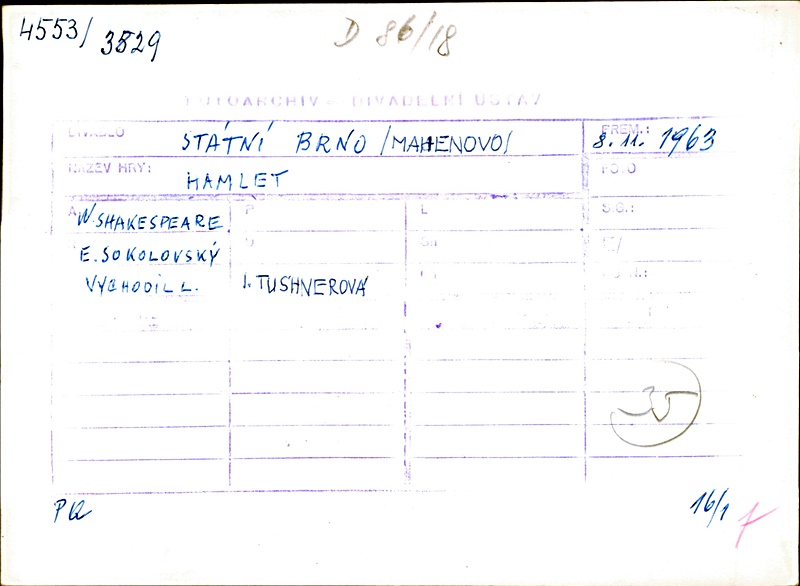 4553/3529
D 86/18
FOTOARCHIV – DIVADELNÍ ÚSTAV
DIVADLO STÁTNÍ BRNO /MAHENOVO/ PREM.: 8. 11. 1963
NÁZEV HRY: HAMLET FOTO
A W. SHAKESPEARE P L S.G.:
E. SOKOLOVSKÝ
VYCHODIL L. I. TUSHNEROVÁ
PQ 16/1